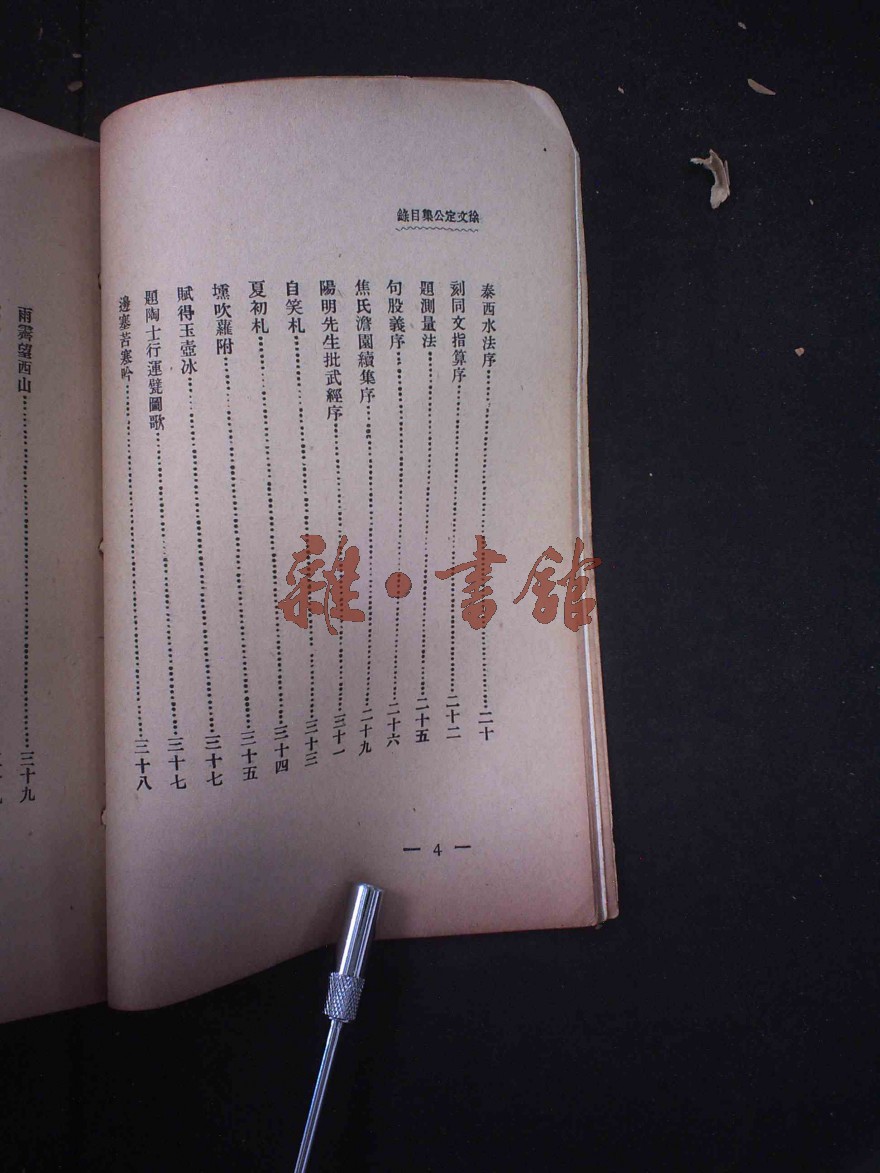 徐文定公集目錄
泰西水法序……二十
刻同文指算序……二十二
題測量法……二十五
句股義序……二十六
焦氏澹園續集序……二十九
陽明先生批武經序……三十一
自笑札……三十三
夏初札……三十四
壎吹蘿附……三十五
賦得玉壺冰……三十七
題陶士行運甓圖歌……三十七
邊塞苦寒吟……三十八
— 4 —
雨霽望西山……三十九
雜·書館